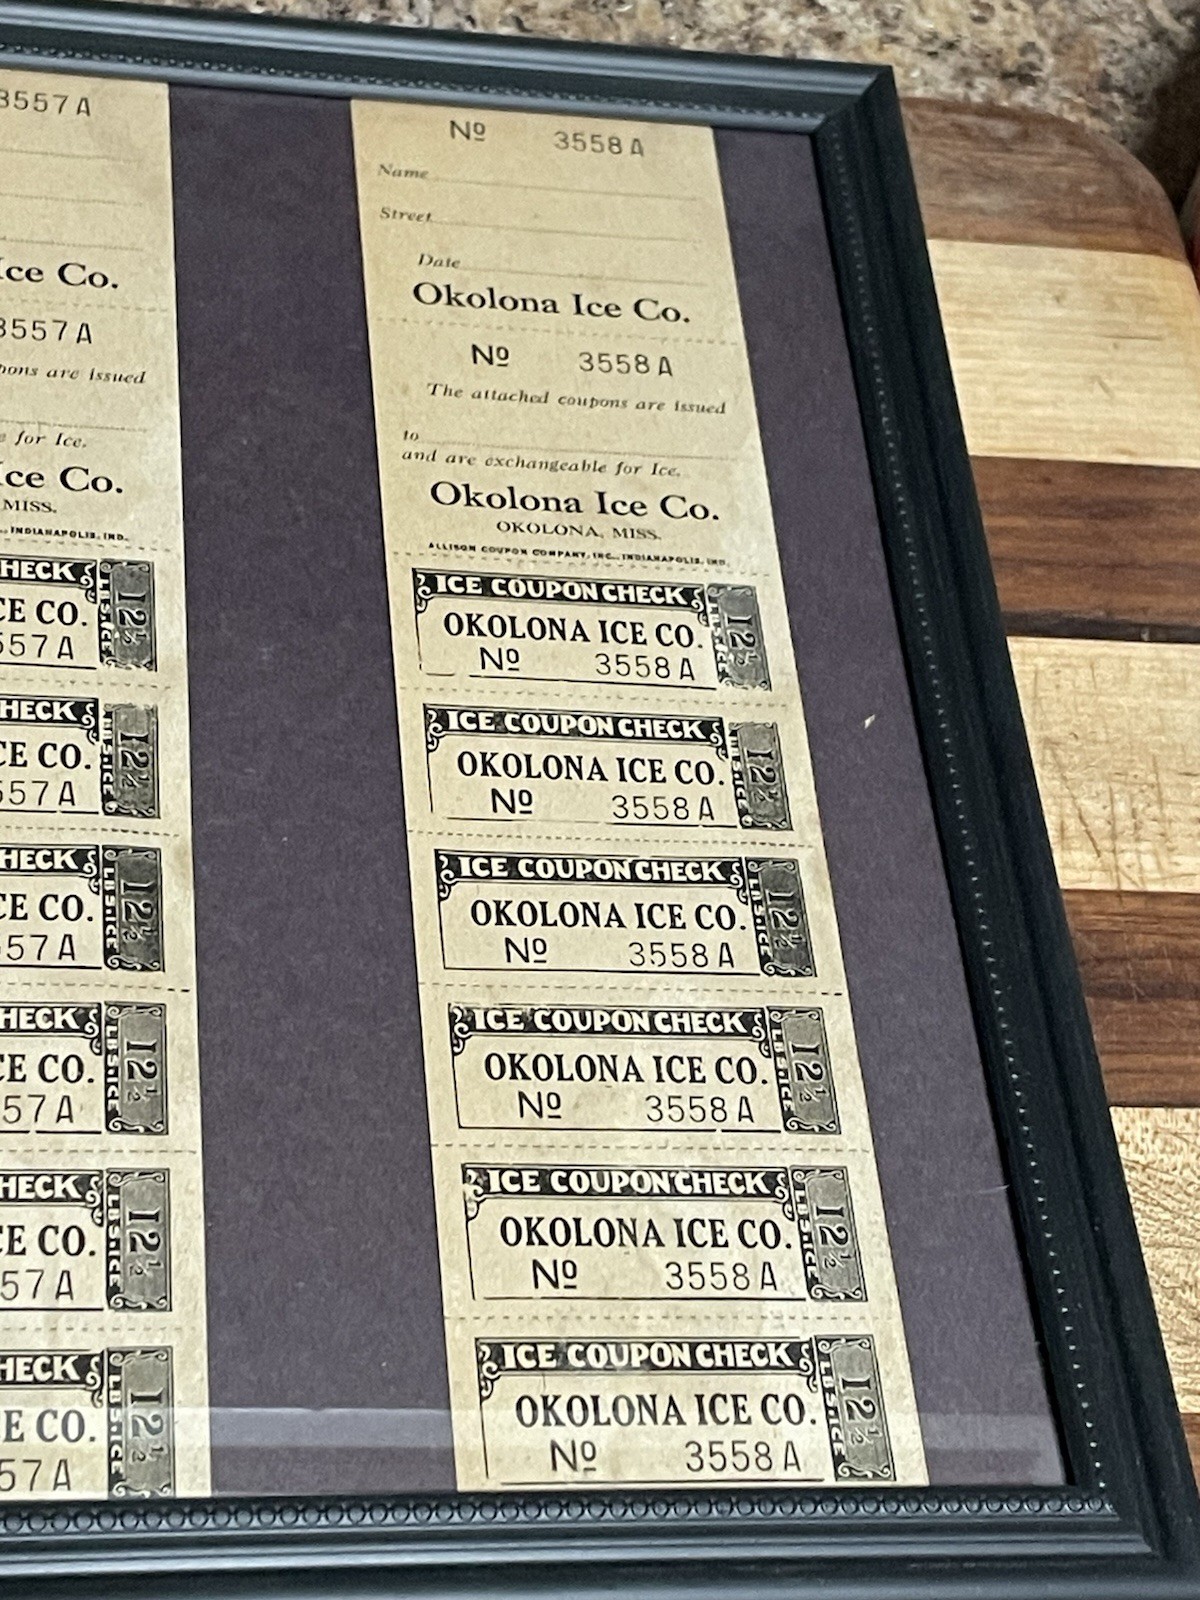 3557 A
Ice Co.
3557 A
are issued
for Ice.
Ice Co.
MISS.
INDIANAPOLIS, IND.
CHECK
CE CO.
557 A
LBS. ICE
12½
CHECK
CE CO.
557 A
LBS. ICE
12½
CHECK
CE CO.
557 A
LBS. ICE
12½
CHECK
CE CO.
57 A
LBS. ICE
12½
CHECK
CE CO.
57 A
LBS. ICE
12½
CHECK
E CO.
57 A
LBS. ICE
12½
Nº 3558 A
Name
Street
Date
Okolona Ice Co.
Nº 3558 A
The attached coupons are issued
to
and are exchangeable for Ice.
Okolona Ice Co.
OKOLONA, MISS.
ALLISON COUPON COMPANY, INC., INDIANAPOLIS, IND.
ICE COUPON CHECK
OKOLONA ICE CO.
Nº 3558 A
LBS. ICE
12½
ICE COUPON CHECK
OKOLONA ICE CO.
Nº 3558 A
LBS. ICE
12½
ICE COUPON CHECK
OKOLONA ICE CO.
Nº 3558 A
LBS. ICE
12½
ICE COUPON CHECK
OKOLONA ICE CO.
Nº 3558 A
LBS. ICE
12½
ICE COUPON CHECK
OKOLONA ICE CO.
Nº 3558 A
LBS. ICE
12½
ICE COUPON CHECK
OKOLONA ICE CO.
Nº 3558 A
LBS. ICE
12½